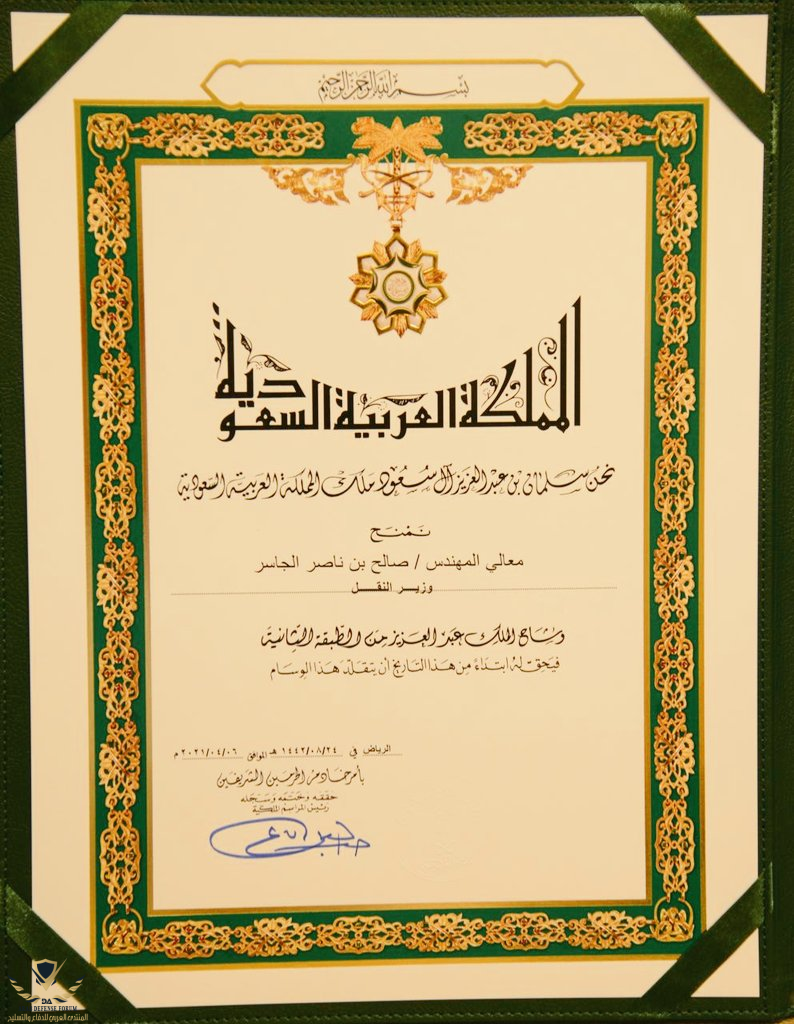 بسم الله الرحمن الرحيم
المملكة العربية السعودية
نحن سلمان بن عبد العزيز آل سعود ملك المملكة العربية السعودية
نمنح
معالي المهندس / صالح بن ناصر الجاسر
وزير النقل
وشاح الملك عبد العزيز من الطبقة الثانية
فيحق له ابتداءً من هذا التاريخ أن يتقلد هذا الوسام
الرياض في ١٤٤٢/٠٨/٢٤ هـ الموافق ٢٠٢١/٠٤/٠٦ م
بأمر خادم الحرمين الشريفين
حققه وختمه وسجله
رئيس المراسم الملكية
DA
DEFENSE FORUM
المنتدى العربي للدفاع والتسليح